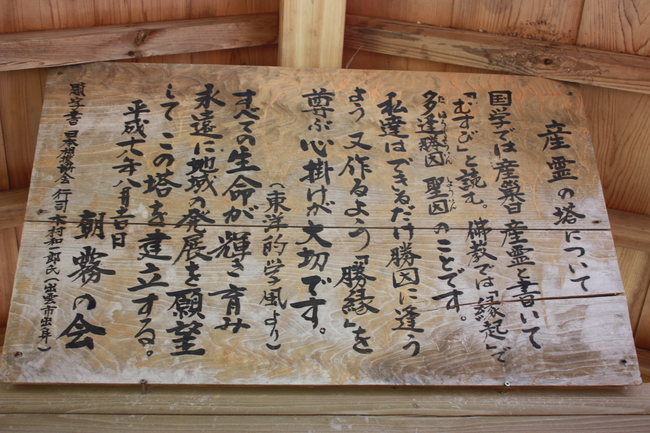 産霊の塔について
国学では産巣日 産霊と書いて
「むすび」と読む。佛教では「縁起」で
多逢勝因 聖因のことです。
私達はできるだけ勝因に逢う
よう 又作るよう「勝縁」を
尊ぶ心掛けが大切です。
(東洋的学風より)
すべての生命が輝き育み
永遠に地域の発展を願望
して この塔を建立する。
平成十八年八月吉日
朝霧の会
行司 木村和一郎氏(出雲市出身)